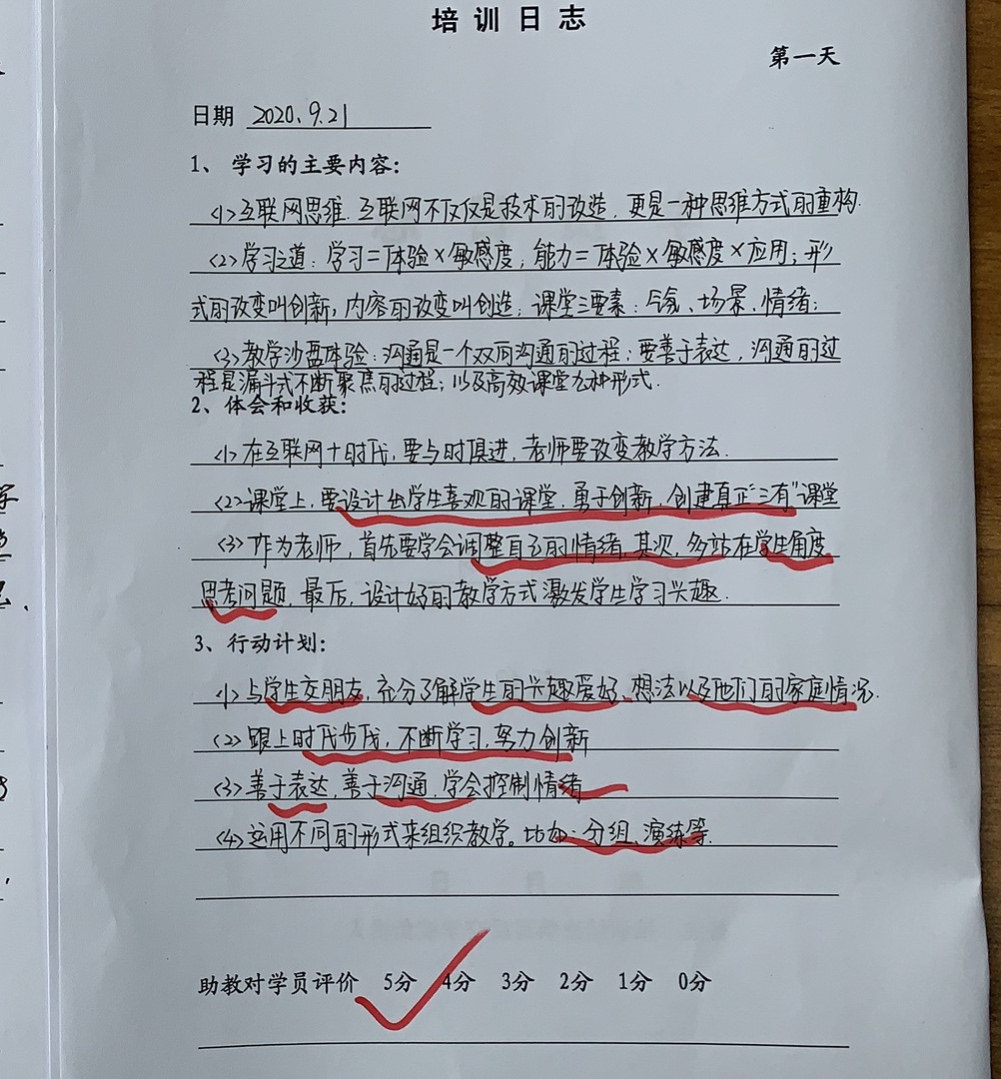 培训日志
第一天
日期 2020.9.21
1、学习的主要内容：
<1>互联网思维.互联网不仅仅是技术的改造，更是一种思维方式的重构.
<2>学习之道：学习=体验×敏感度；能力=体验×敏感度×应用；形
式的改变叫创新，内容的改变叫创造；课堂三要素：气氛、场景、情绪；
<3>教学沙盘体验：沟通是一个双向沟通的过程；要善于表达，沟通的过
程是漏斗式不断聚焦的过程；以及高效课堂九种形式.
2、体会和收获：
<1>在互联网+时代，要与时俱进，老师要改变教学方法.
<2>课堂上，要设计出学生喜欢的课堂，勇于创新，创建真正“三有”课堂
<3>作为老师，首先要学会调整自己的情绪，其次，多站在学生角度
思考问题，最后，设计好的教学方式激发学生学习兴趣.
3、行动计划：
<1>与学生交朋友，充分了解学生的兴趣爱好、想法以及他们的家庭情况.
<2>跟上时代步伐，不断学习，努力创新
<3>善于表达，善于沟通，学会控制情绪
<4>运用不同的形式来组织教学。比如：分组、演练等.
助教对学员评价 5分 4分 3分 2分 1分 0分